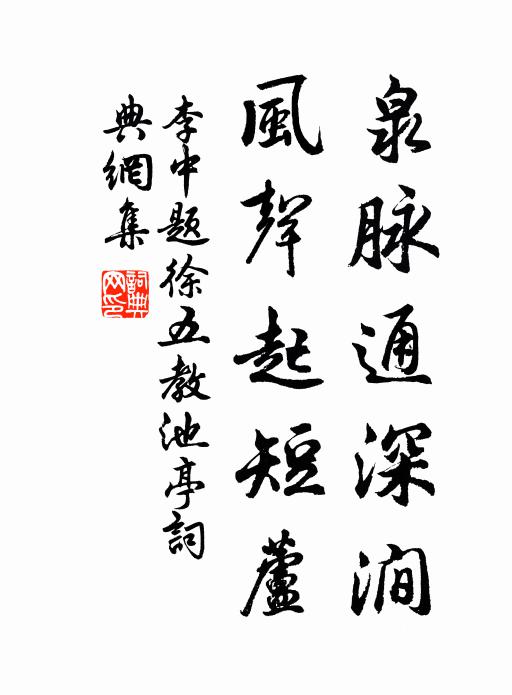 泉脉通深澗
風聲起短蘆
李中題徐五教池亭詞
典網集
詞典網印